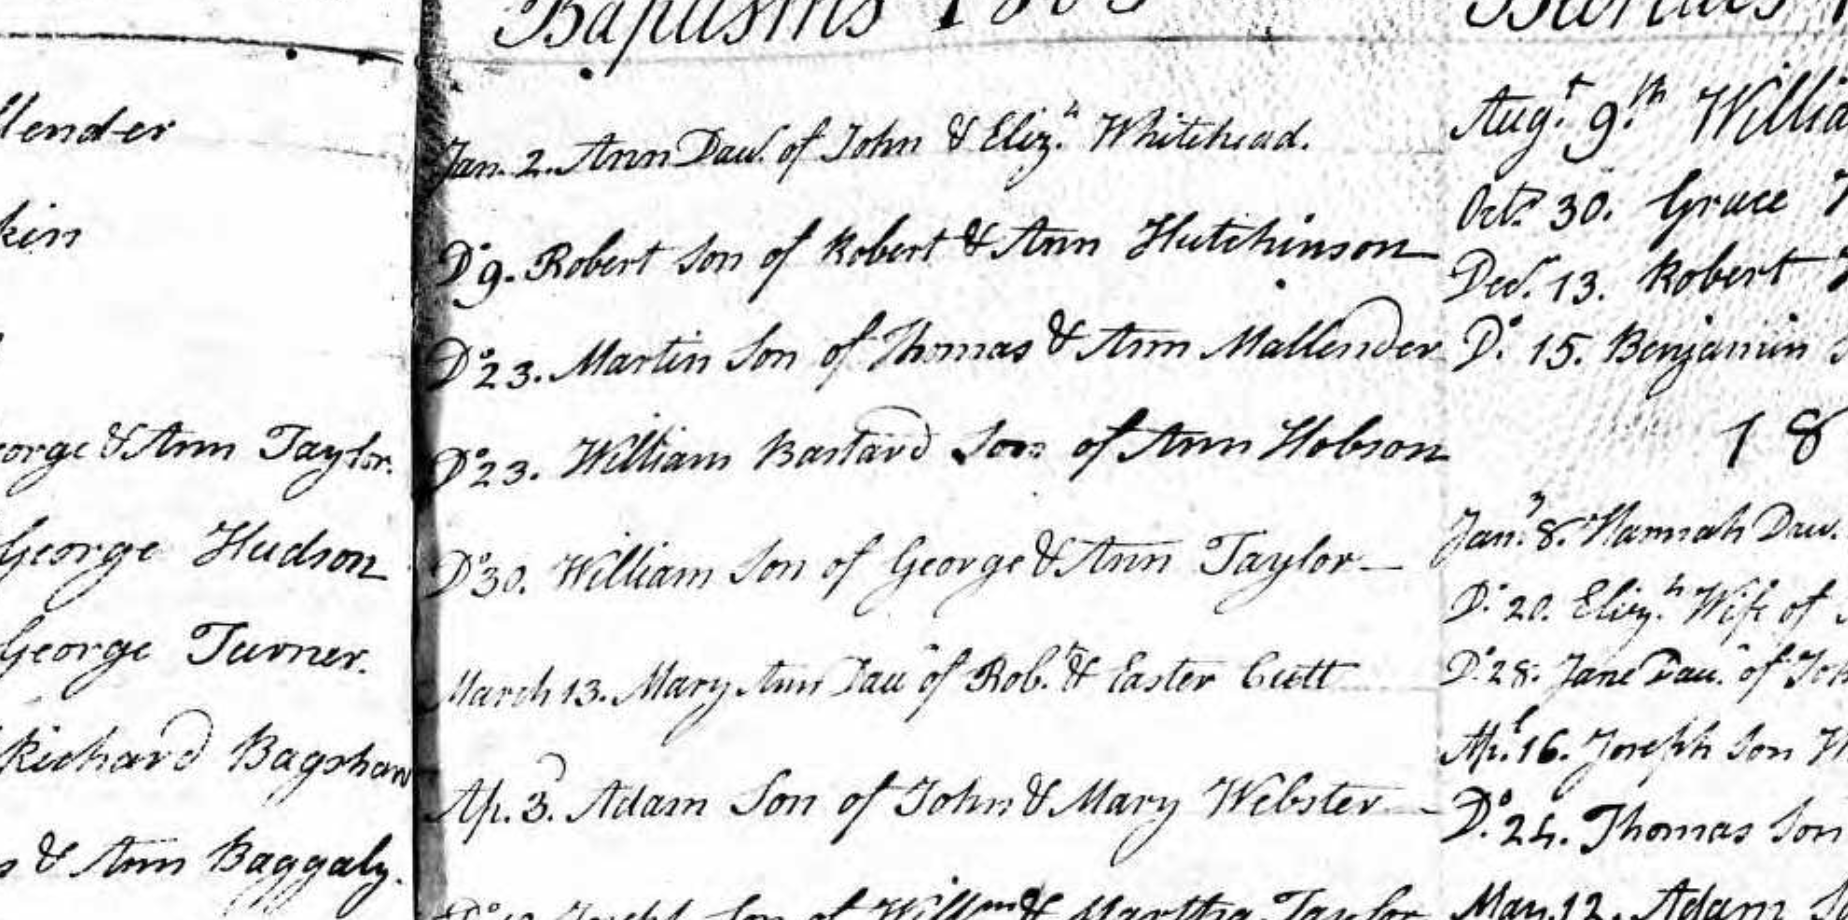 llender
kin
orge & Ann Taylor.
George Hudson
George Turner.
Richard Bagshaw
s & Ann Baggaly.
Baptisms 1803
Jan. 2. Ann Dau. of John & Eliz.h Whitehead.
Do 9. Robert Son of Robert & Ann Hutchinson
Do 23. Martin Son of Thomas & Ann Mallender
Do 23. William Bastard Son of Ann Hobson
Do 30. William Son of George & Ann Taylor
March 13. Mary Ann Dau.r of Rob.t & Easter Cutt
Ap. 3. Adam Son of John & Mary Webster
Do Joseph Son of Willm & Martha Taylor
Burials
Aug.t 9.th Willia
Oct.r 30. Grace
Dec.r 13. Robert
Do 15. Benjamin
18
Jan.y 8. Hannah Dau.
Do 20. Eliz.h Wife of
Do 28. Jane Dau.r of Joh
Ap.l 16. Joseph Son
Do 24. Thomas Son
May 12. Adam